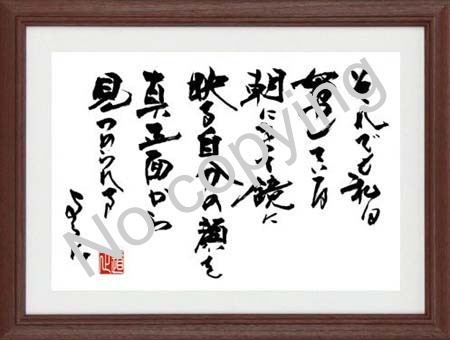 それでも私は
朝に
鏡に
映る自分の顔を
真正面から
見つめられる
No copying